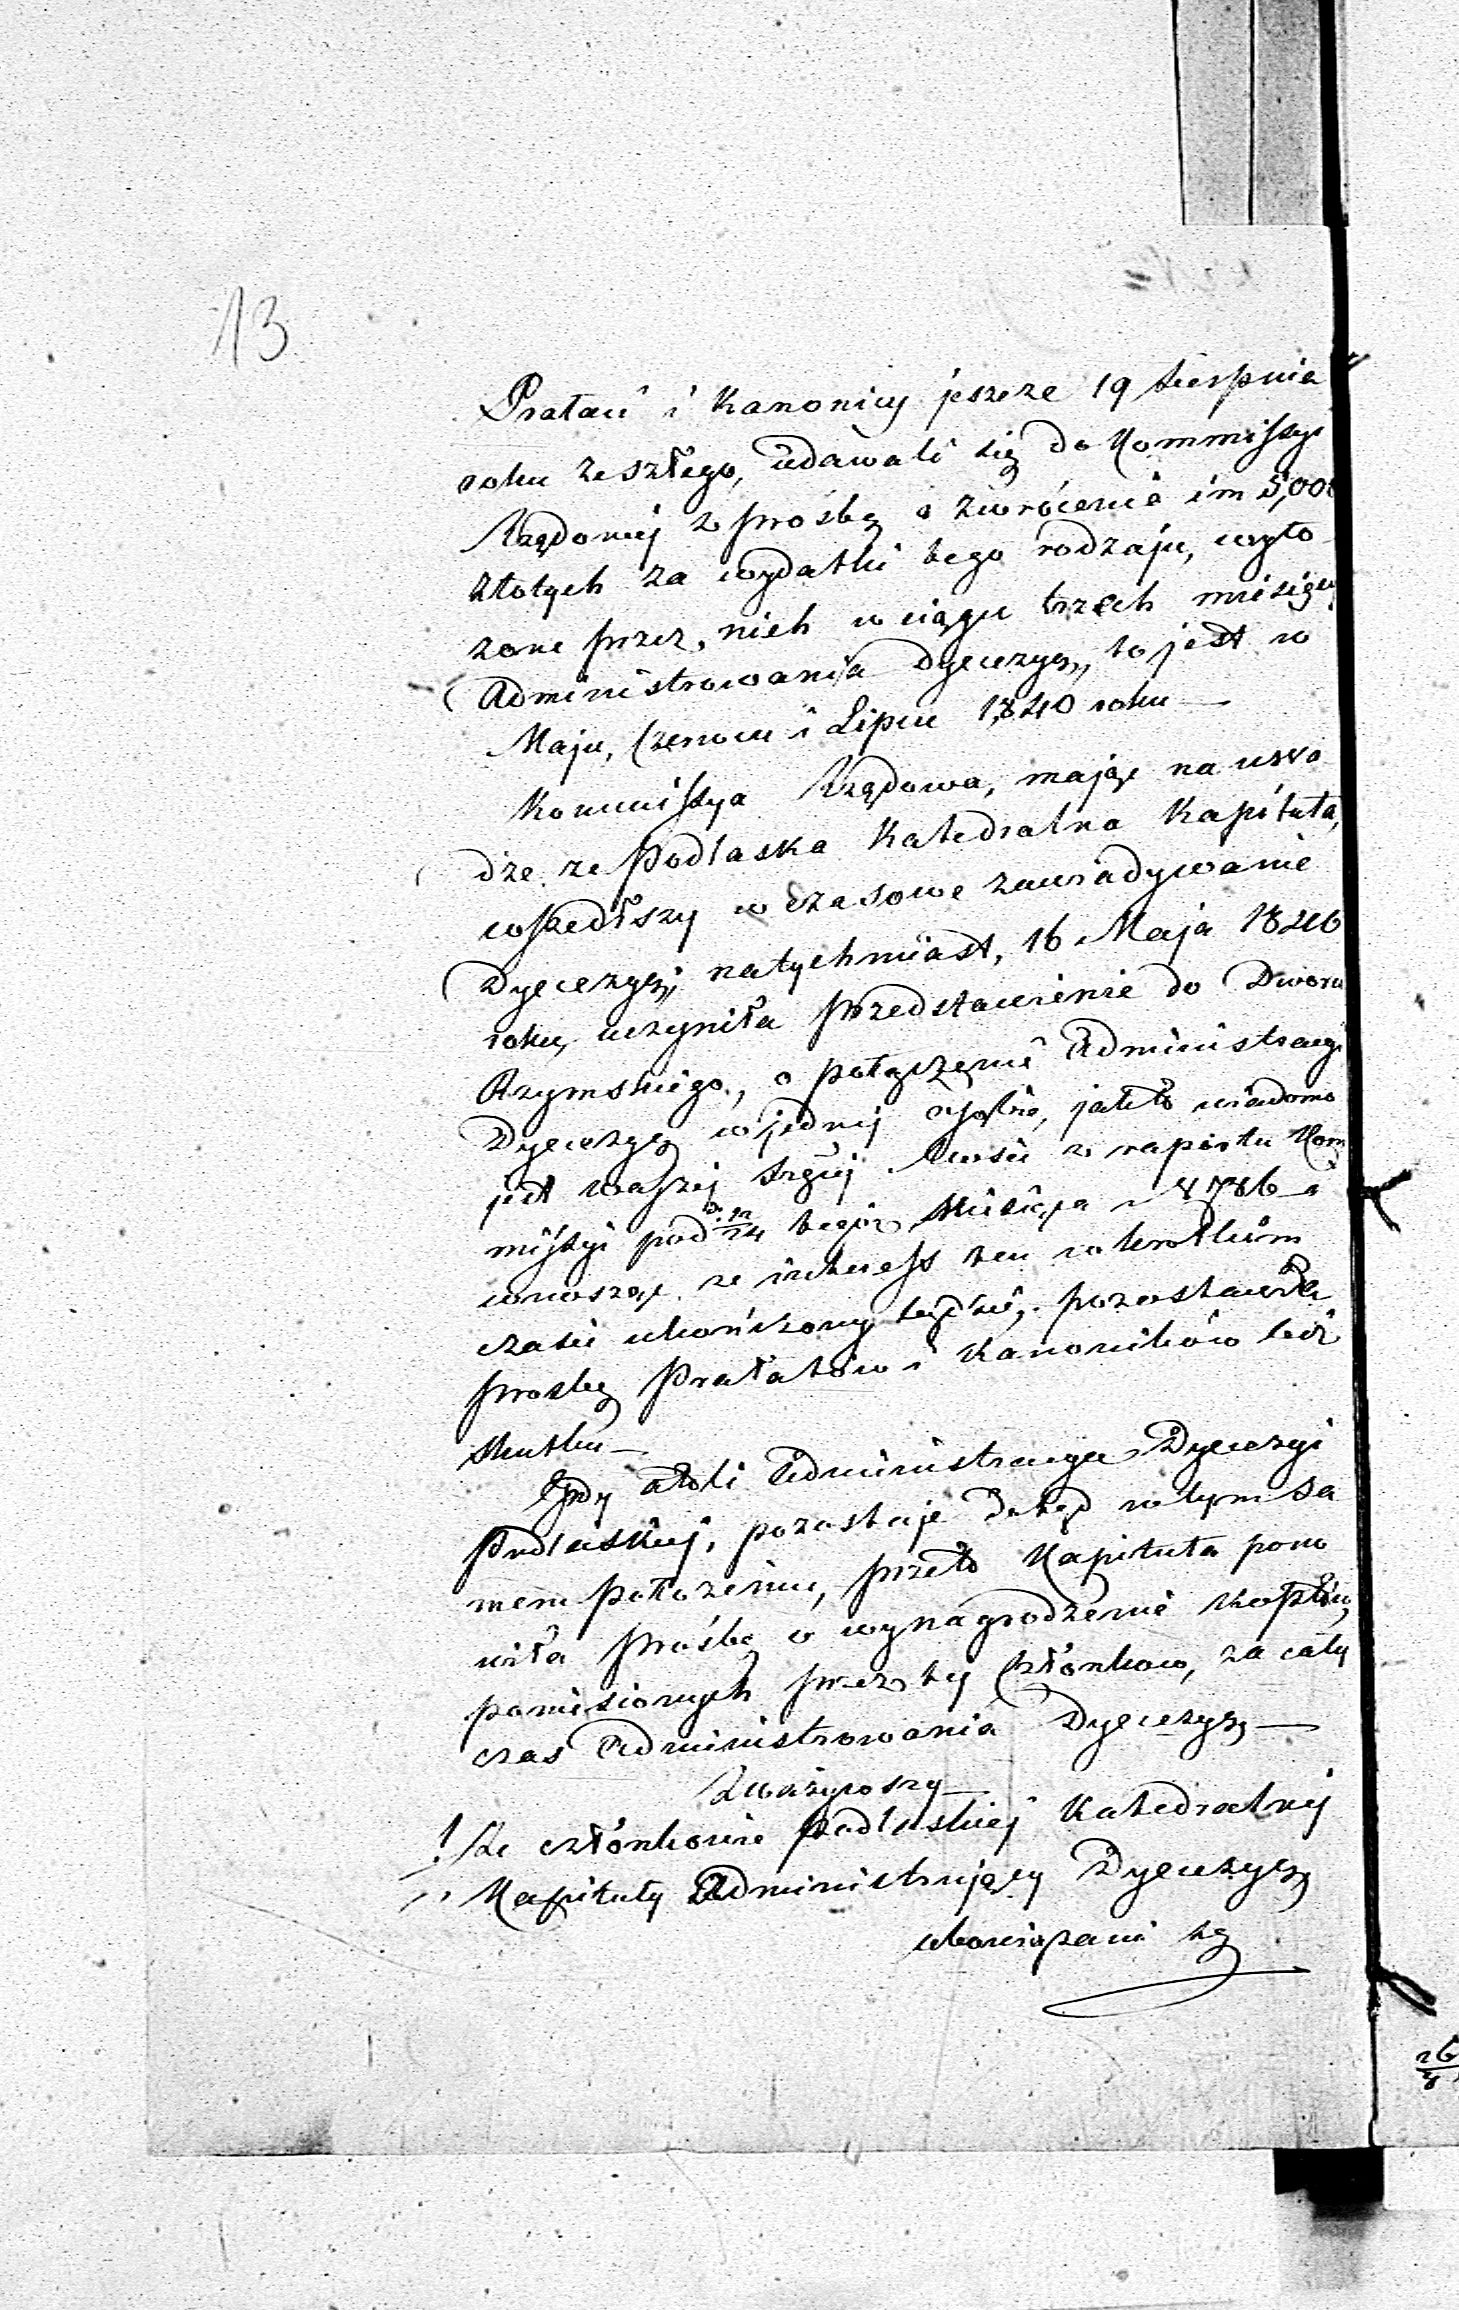 13
Prałaci i Kanonicy jeszcze 19 Sierpnia
roku zeszłego, udawali się do Kommissyi
Rządowej z prośbą o zwrócenie im 5,000
złotych za wydatki tego rodzaju, wyło
żone przez nich w ciągu trzech miesięcy
Administrowania Dyecezyą, to jest w
Maju, Czerwcu i Lipcu 1840 roku —
Kommissya Rządowa, mając na uwa
dze że Podlaska Katedralna Kapituła,
wszedłszy w czasowe zawiadywanie
Dyecezyą, natychmiast, 16 Maja 1840
roku, uczyniła przedstawienie do Dworu
Rzymskiego, o połączenie Administracyi
Dyecezyą w jednej osobie, jak to wiadomo
jest Waszej Xcej Mości z rapportu Kom
missyi pod 12/24 tegoż Miesiąca N 8786 i
wnosząc że interess ten w krótkim
czasie ukończony będzie, pozostawiła
prosbę Prałatów i Kanoników bez
skutku —
Gdy atoli Administracya Dyecezyi
Podlaskiej, pozostaje dotąd w tym sa
mem położeniu, przeto Kapituła pono
wiła prośbę o wynagrodzenie kosztów,
poniesionych przez jej Członków, za cały
czas Administrowania Dyecezyą —
Zważywszy —
1. Że członkowie Podlaskiej Katedralnej
Kapituły Administrujący Dyecezyą
obowiązani są
26